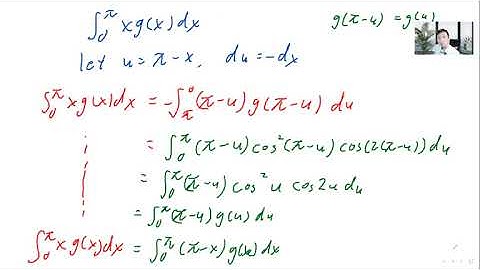 ∫₀^π x g(x) dx
g(π-u) = g(u)
let u = π-x, du = -dx
∫₀^π x g(x) dx = -∫_π^0 (π-u) g(π-u) du
= ∫₀^π (π-u) cos²(π-u) cos(2(π-u)) du
= ∫₀^π (π-u) cos² u cos 2u du
= ∫₀^π (π-u) g(u) du
∫₀^π x g(x) dx = ∫₀^π (π-x) g(x) dx